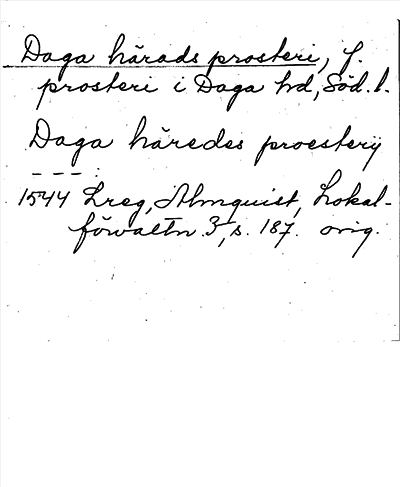 Daga härads prosteri, f.
prosteri i Daga hd, Söd. l.
Daga häredes proestery
- - - .
1544 Lreg, Almquist, Lokal-
förvaltn. 3, s. 187. orig.